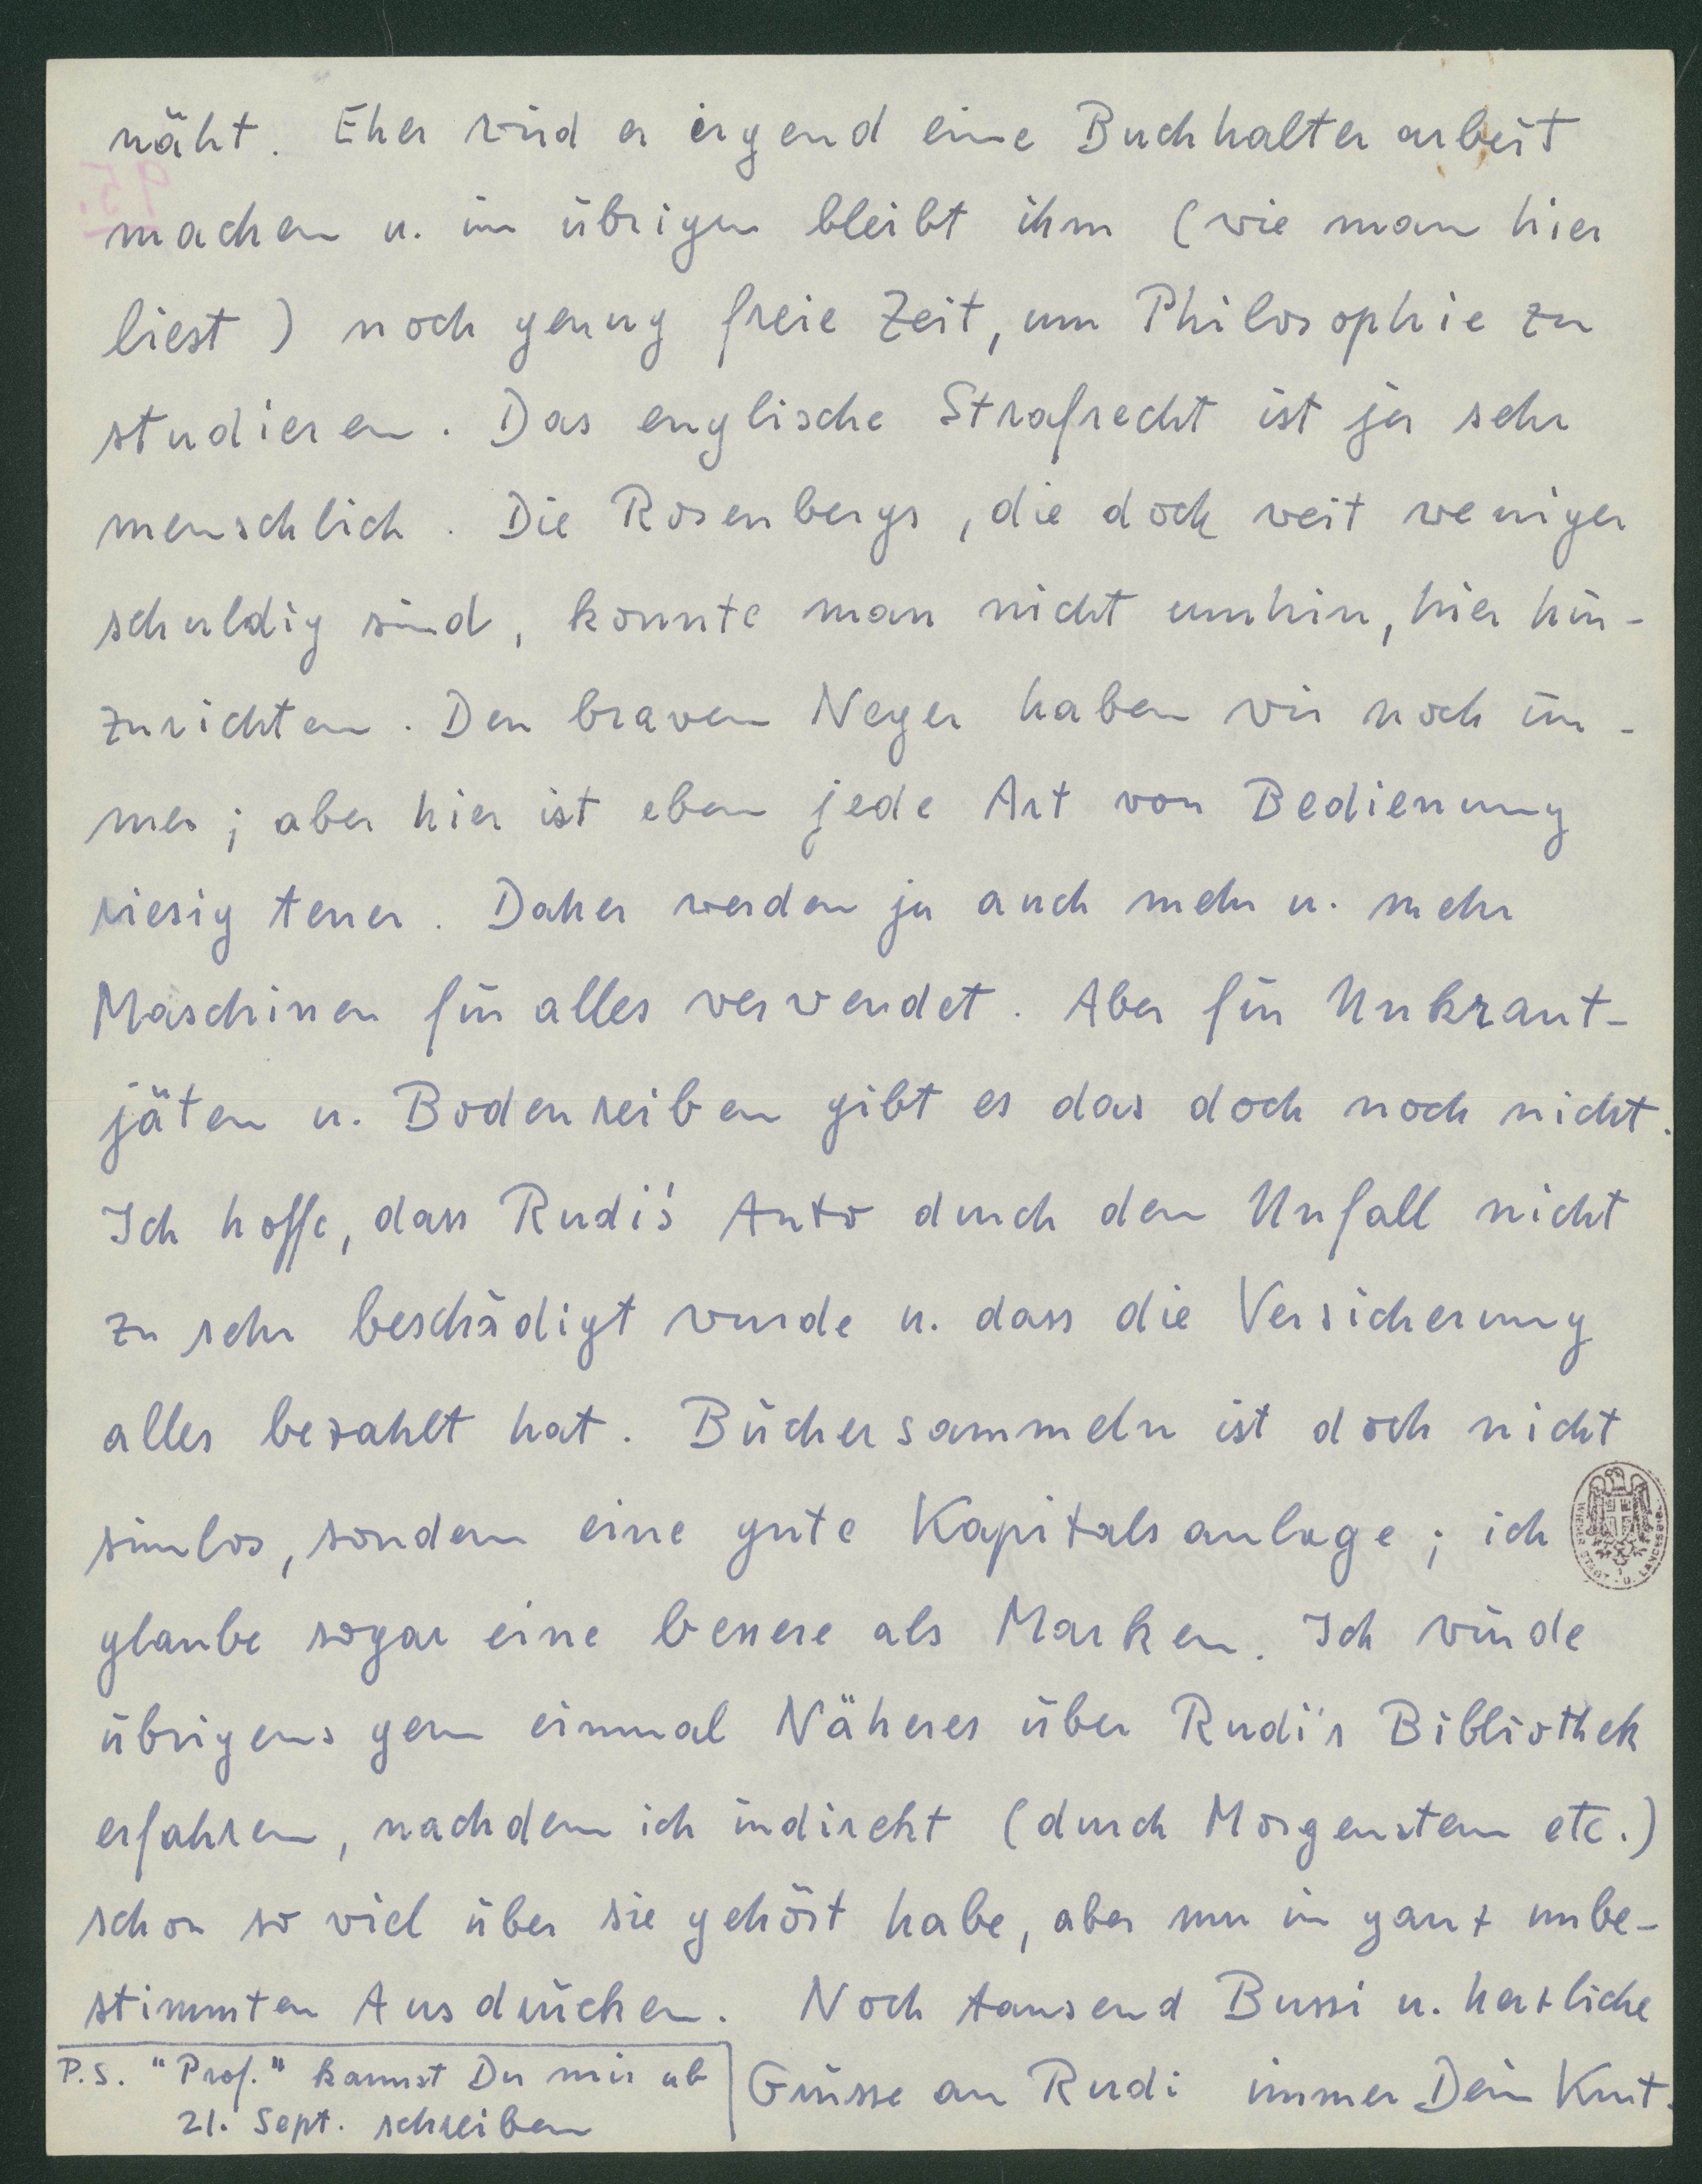 näht. Eher wird er irgend eine Buchhalterarbeit
machen u. im übrigen bleibt ihm (wie man hier
liest) noch genug freie Zeit, um Philosophie zu
studieren. Das englische Strafrecht ist ja sehr
menschlich. Die Rosenbergs, die doch weit weniger
schuldig sind, konnte man nicht umhin, hier hin-
zurichten. Den braven Neger haben wir noch im-
mer; aber hier ist eben jede Art von Bedienung
riesig teuer. Daher werden ja auch mehr u. mehr
Maschinen für alles verwendet. Aber für Unkraut-
jäten u. Bodenreiben gibt es das doch noch nicht.
Ich hoffe, dass Rudi's Auto durch den Unfall nicht
zu sehr beschädigt wurde u. dass die Versicherung
alles bezahlt hat. Büchersammeln ist doch nicht
sinnlos, sondern eine gute Kapitalsanlage; ich
glaube sogar eine bessere als Marken. Ich würde
übrigens gern einmal Näheres über Rudi's Bibliothek
erfahren, nachdem ich indirekt (durch Morgenstern etc.)
schon so viel über sie gehört habe, aber nur in ganz unbe-
stimmten Ausdrücken. Noch tausend Bussi u. herzliche
Grüsse an Rudi immer Dein Kurt.
P.S. "Prof." kannst Du mir ab
21. Sept. schreiben
95.
WIENER STADT- U. LANDESBIB.